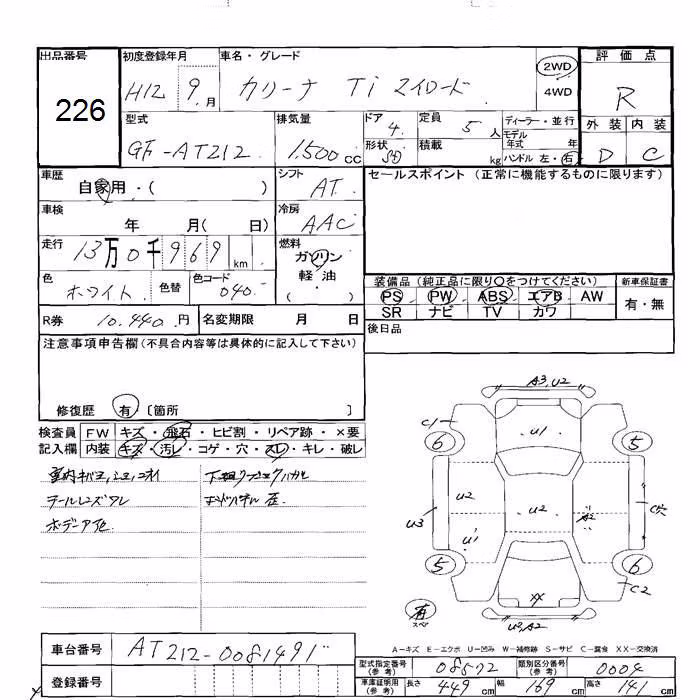 出品番号 初度登録年月 車名・グレード 評価点
226 H12 9 月 カリーナ Ti マイロード 2WD 4WD R
型式 排気量 ドア 4 定員 5 人 ディーラー・並行 外装 内装
GF-AT212 1,500 cc 形状 SD 積載 kg モデル年式 年 ハンドル 左・右 D C
車歴 自家用・( ) シフト AT セールスポイント (正常に機能するものに限ります)
車検 年 月( 日) 冷房 AAC
走行 13万0千969 km 燃料 ガソリン 軽・油 ( )
色 ホワイト 色替 色コード 040 装備品 (純正品に限り○をつけてください) 新車保証書
PS PW ABS エアB AW 有・無
SR ナビ TV カワ
R券 10,440 円 名変期限 月 日 後日品
注意事項申告欄(不具合内容等は具体的に記入して下さい)
修復歴 有 〔箇所 〕
検査員 FW キズ・飛石・ヒビ割・リペア跡・×要
記入欄 内装 キズ・汚レ・コゲ・穴・スレ・キレ・破レ
テールレンズワレ
ボデー
A3,U2
C1 6 U1 5
U3 U2 U2 A2 C穴
U1
5 XX 6 C2
有 スペア U2,A2
A-キズ E-エクボ U-凹み W-補修跡 S-サビ C-腐食 XX-交換済
車台番号 AT212-0081491 型式指定番号(参考) 08572 類別区分番号(参考) 0004
登録番号 車庫証明用(参考) 長さ 449 cm 幅 169 cm 高さ 141 cm